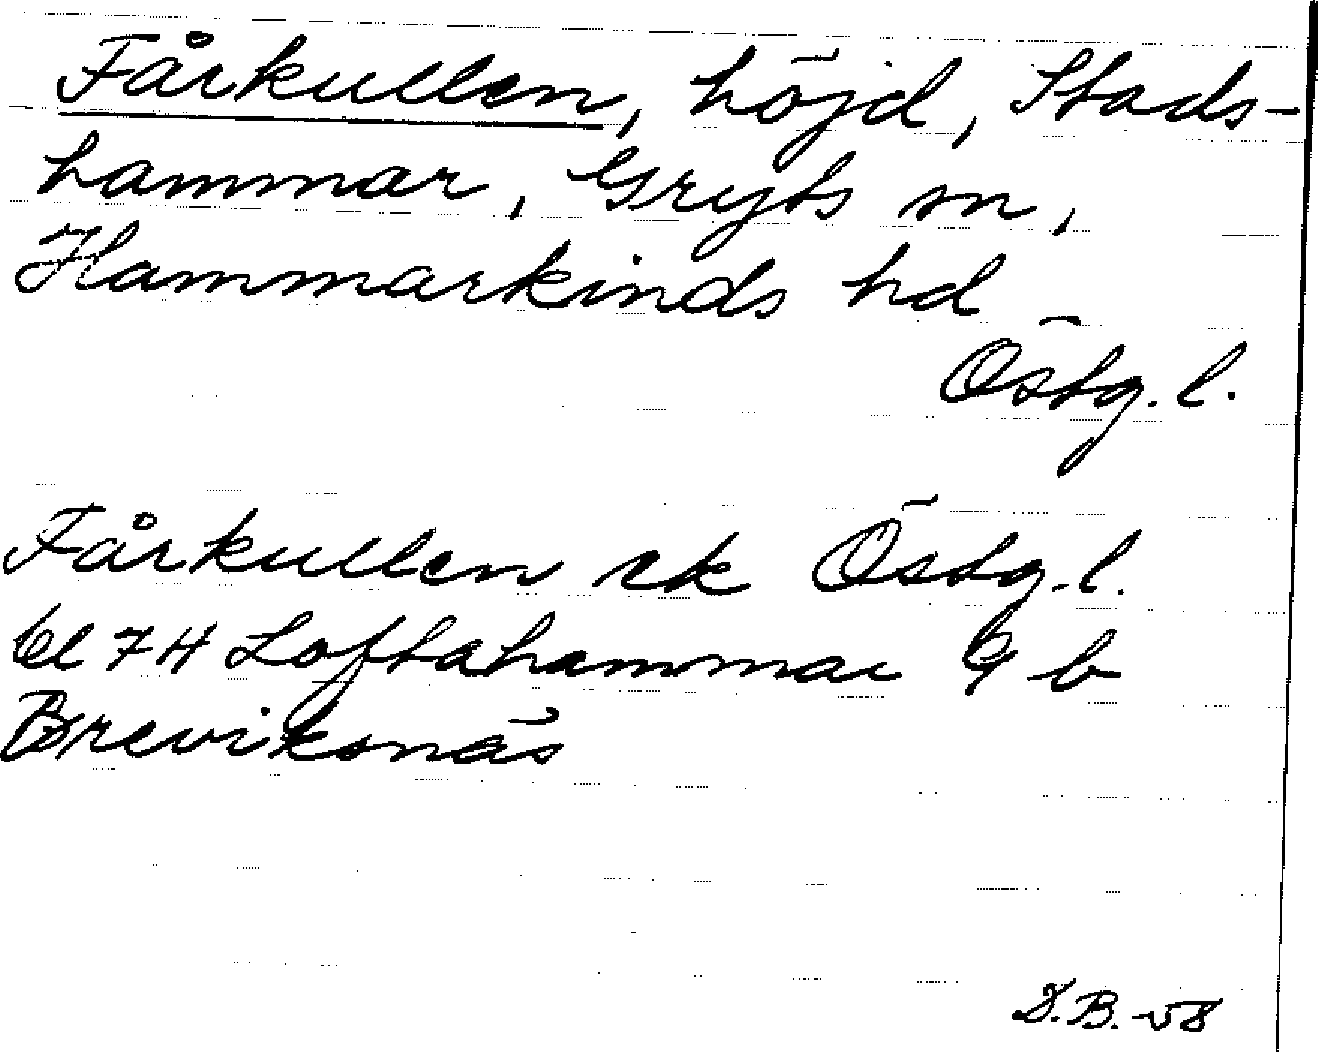 Fårkullen, höjd, Stads-
hammar, Gryts sn,
Hammarkinds hd
Östg. l.
Fårkullen ek Östg. l.
bl 7H Loftahammar 9 b
Breviksnäs
D.B.-58